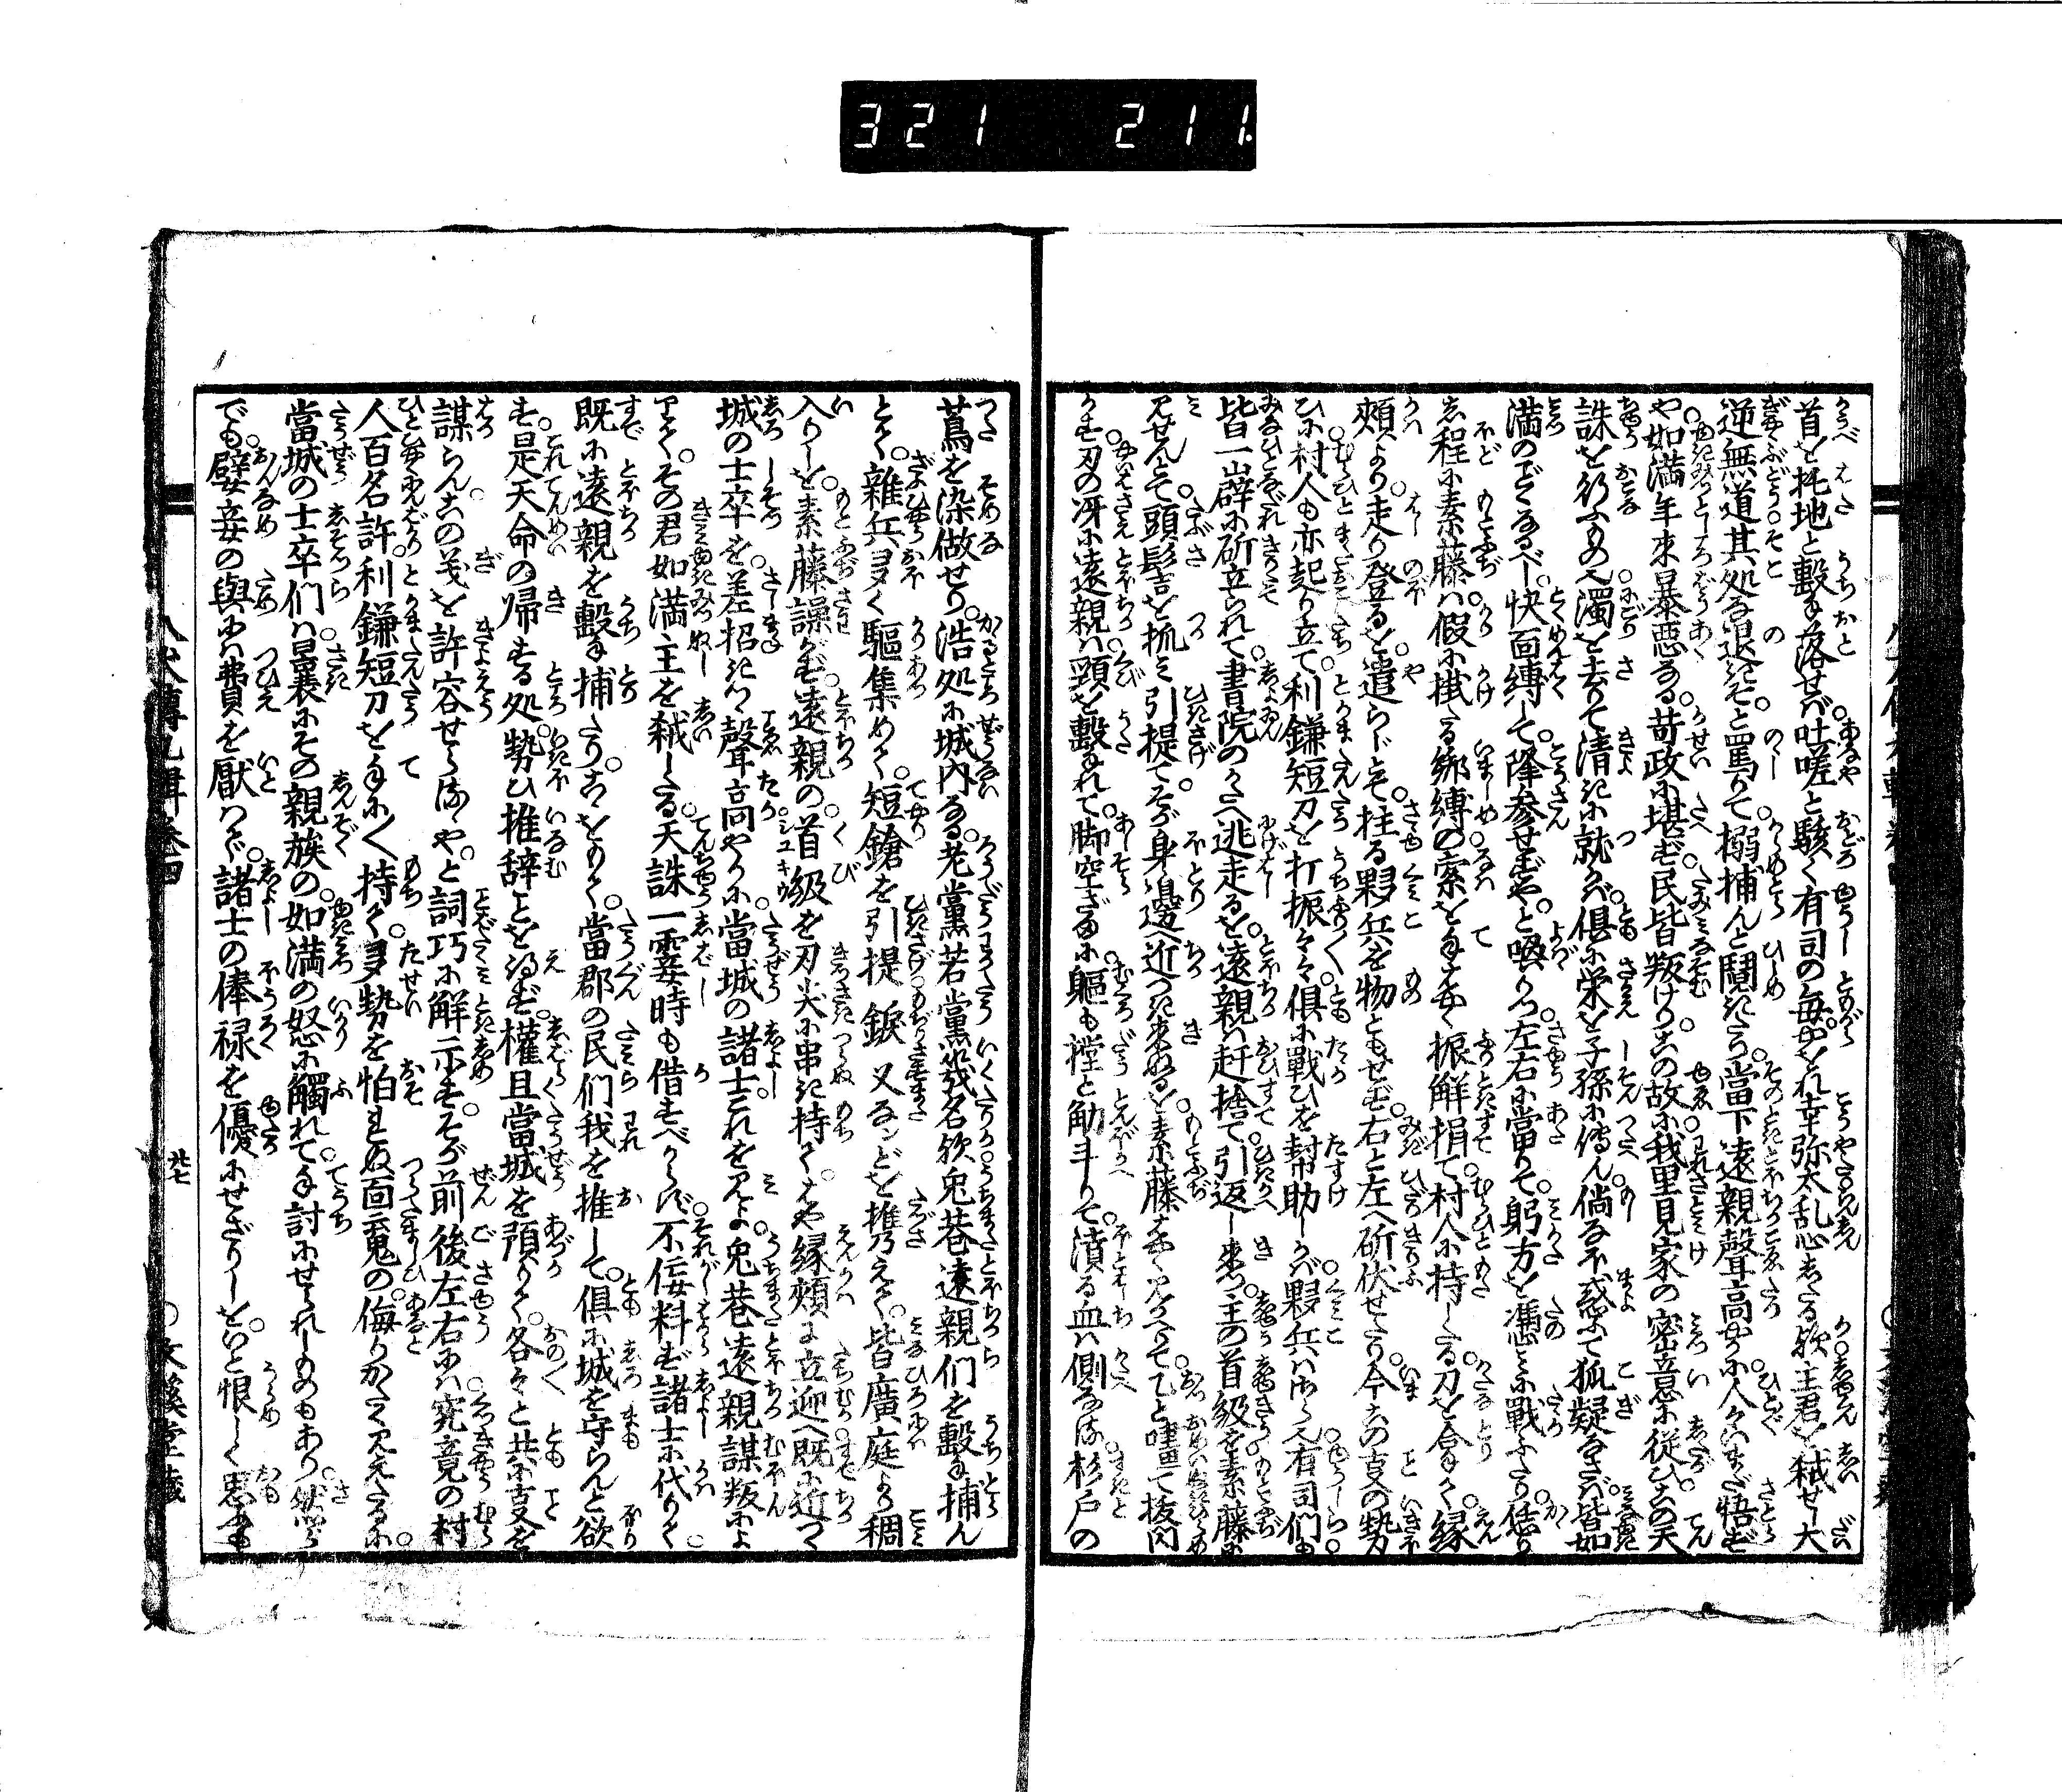 321 211.
首を扥地と撃落せば。吐嗟と駭く有司の毎。やをれ幸弥太乱心したる歟。主君を弑せし大
逆無道。其処な退きそと罵りて。搦捕んと鬩きたる。當下遠親聲高やかに。人々いまだ悟らずや。
如満年来暴悪なる。苛政に堪ず。民皆叛けり。この故に我里見家の密意に従ひ。この天
誅を行ふものを。濁を去りて清に就かば。倶に栄を子孫に傳ん。倘なほ惑ふて狐疑なさば。皆如
満のごとくなるべし。快面縛して。降参せずや。と喚りつ。左右に當りて。躬方を憑みに戦ふたり。恁りし
程に素藤は。假に掛たる綁縛の索を手はやく振解捐て。村人に持したる。刀を合手く縁
頬より走り登るを。遣らじと。拄る夥兵を物ともせず。右と左へ斫伏せたり。今この
勢ひに村人も亦起り立て。利鎌短刀を打振々々。倶に戦ひを幇助しかば。夥兵はさら也有司們も
皆一崩に斫立られて。書院のかたへ逃走るを。遠親は赶捨て引返し来つ。主の首級を素藤に
見せんとて。頭髻を抓み引提て。そが身邊へ近つき来ぬるを。素藤はやく見かへりて。と嘩て抜閃
かす刃の冴に。遠親は頸を撃れて。脚空ざまに。軀も撑と觔斗りて。濆る血は側なる杉戸の
蔦を染做せり。浩処に城内なる。老黨若黨幾名欤。兎巷遠親們を撃捕ん
とて。雑兵多く駆集めて。短鎗を引提。錑又なンどを携えて。皆廣庭より稠
入りしを。素藤譟がず。遠親の首級を刃尖に串き持て。はや縁頬に立迎へ。既に近つく
城の士卒を。差招きつゝ聲高やかに。當城の諸士。これを見よ。兎巷遠親謀叛によ
りて。その君如満主を弑したる。天誅一霎時も借すべからず。不佞料ず諸士に代りて。
既に遠親を撃捕たり。これをもて。當郡の民們我を推して。倶に城を守らんと欲
す。是天命の帰する処。勢ひ推辞ことを得ず。權且當城を預りて。各々と共に事を
謀らん。この義を許容せらるゝや。と詞巧に解示す。そが前後左右には。究竟の村
人百名許。利鎌短刀を手に〳〵持て。多勢を怕れぬ面魂の。侮りがたく見えたるに。
當城の士卒們は。曩にその親族の。如満の怒に觸れて。手討にせられしものもあり。然ら
でも。嬖妾の與には費を厭はで。諸士の俸禄を優にせざりしを。いと恨しく思ふも
八犬傳九輯巻四
廿七
文溪堂藏